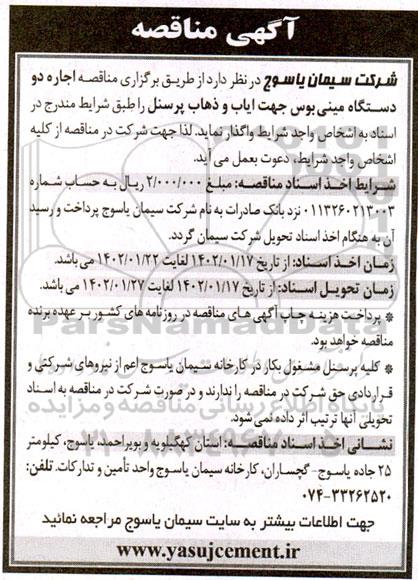 آگهی مناقصه
شرکت سیمان یاسوج در نظر دارد از طریق برگزاری مناقصه اجاره دو
دستگاه مینی‌بوس جهت ایاب و ذهاب پرسنل را طبق شرایط مندرج در
اسناد به اشخاص واجد شرایط واگذار نماید. لذا جهت شرکت در مناقصه از کلیه
اشخاص واجد شرایط، دعوت بعمل می آید.
شرایط اخذ اسناد مناقصه: مبلغ ۲/۰۰۰/۰۰۰ ریال به حساب شماره
۰۱۱۳۲۶۰۲۱۳۰۰۳ نزد بانک صادرات به نام شرکت سیمان یاسوج پرداخت و رسید
آن به هنگام اخذ اسناد تحویل شرکت سیمان گردد.
زمان اخذ اسناد: از تاریخ ۱۴۰۲/۰۱/۱۷ لغایت ۱۴۰۲/۰۱/۲۲ می باشد.
زمان تحویل اسناد: از تاریخ ۱۴۰۲/۰۱/۱۷ لغایت ۱۴۰۲/۰۱/۲۷ می باشد.
* پرداخت هزینه چاپ آگهی های مناقصه در روزنامه های کشور بر عهده برنده
مناقصه خواهد بود.
* کلیه پرسنل مشغول بکار در کارخانه سیمان یاسوج اعم از نیروهای شرکتی و
قراردادی حق شرکت در مناقصه را ندارند و در صورت شرکت در مناقصه به اسناد
تحویلی آنها ترتیب اثر داده نمی‌شود.
نشانی اخذ اسناد مناقصه: استان کهگیلویه و بویراحمد، یاسوج، کیلومتر
۲۵ جاده یاسوج- گچساران، کارخانه سیمان یاسوج واحد تأمین و تدارکات. تلفن:
۰۷۴-۳۳۲۶۲۵۲۰
جهت اطلاعات بیشتر به سایت سیمان یاسوج مراجعه نمائید
www.yasujcement.ir
ParsNamadData